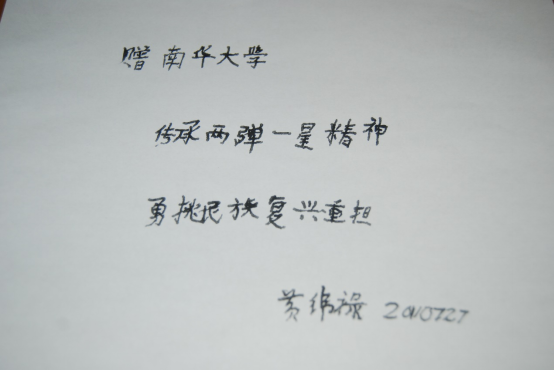 赠南华大学
传承两弹一星精神
勇挑民族复兴重担
黄纬禄 20110727